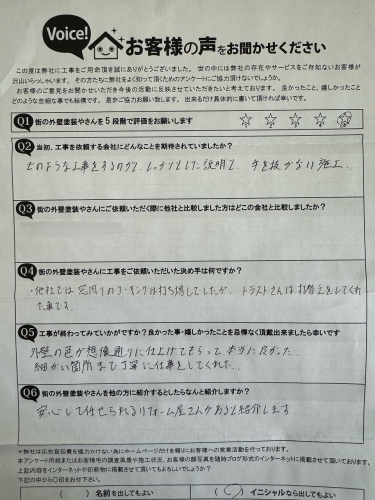 Voice! お客様の声をお聞かせください
この度は弊社に工事をご用命頂き誠にありがとうございました。世の中には弊社の存在やサービスをご存知ないお客様が
沢山いらっしゃいます。その方たちに弊社をよく知って頂くためのアンケートにご協力頂けないでしょうか。
お客様のご意見をお聞かせいただき今後の活動に反映させていただきたいと考えております。良かったこと、嬉しかったこと
どのような些細な事でも結構です。是非ご協力お願い致します。出来るだけ具体的に書いて頂ければ幸いです。
Q1 街の外壁塗装やさんを5段階で評価をお願いします
1 2 3 4 5
Q2 当初、工事を依頼する会社にどんなことを期待されていましたか?
どのような工事をするのか、しっかりとした説明と、手を抜かない施工。
Q3 街の外壁塗装やさんにご依頼いただく際に他社と比較しました方はどこの会社と比較しましたか?
Q4 街の外壁塗装やさんに工事をご依頼いただいた決め手は何ですか?
・他社では窓周りのコーキングは打ち増しでしたが、トラストさんは打替えをしてくれ
た事です。
Q5 工事が終わってみていかがですか?良かった事・嬉しかったことを忌憚なく頂戴出来ましたら幸いです
外壁の色が想像通りに仕上げてもらって本当に良かった。
細かい箇所まで丁寧に仕事をしてくれた。
Q6 街の外壁塗装やさんを他の方に紹介するとしたらなんと紹介しますか?
安心して任せられるリフォーム屋さんがあると紹介します
*弊社は広告宣伝費を極力かけない為にホームページだけを頼りにお客様への営業活動を行っております。
本アンケート用紙またはお客様宅の調査風景や施工状況、お客様の顔写真を随時ブログ形式でインターネットに掲載させて頂いております。
上記内容をインターネットや印刷物に掲載させて頂いてもよろしいでしょうか?
下記の中から〇印をお付け下さい。
( )名前を出してもよい (〇)イニシャルなら出してもよい